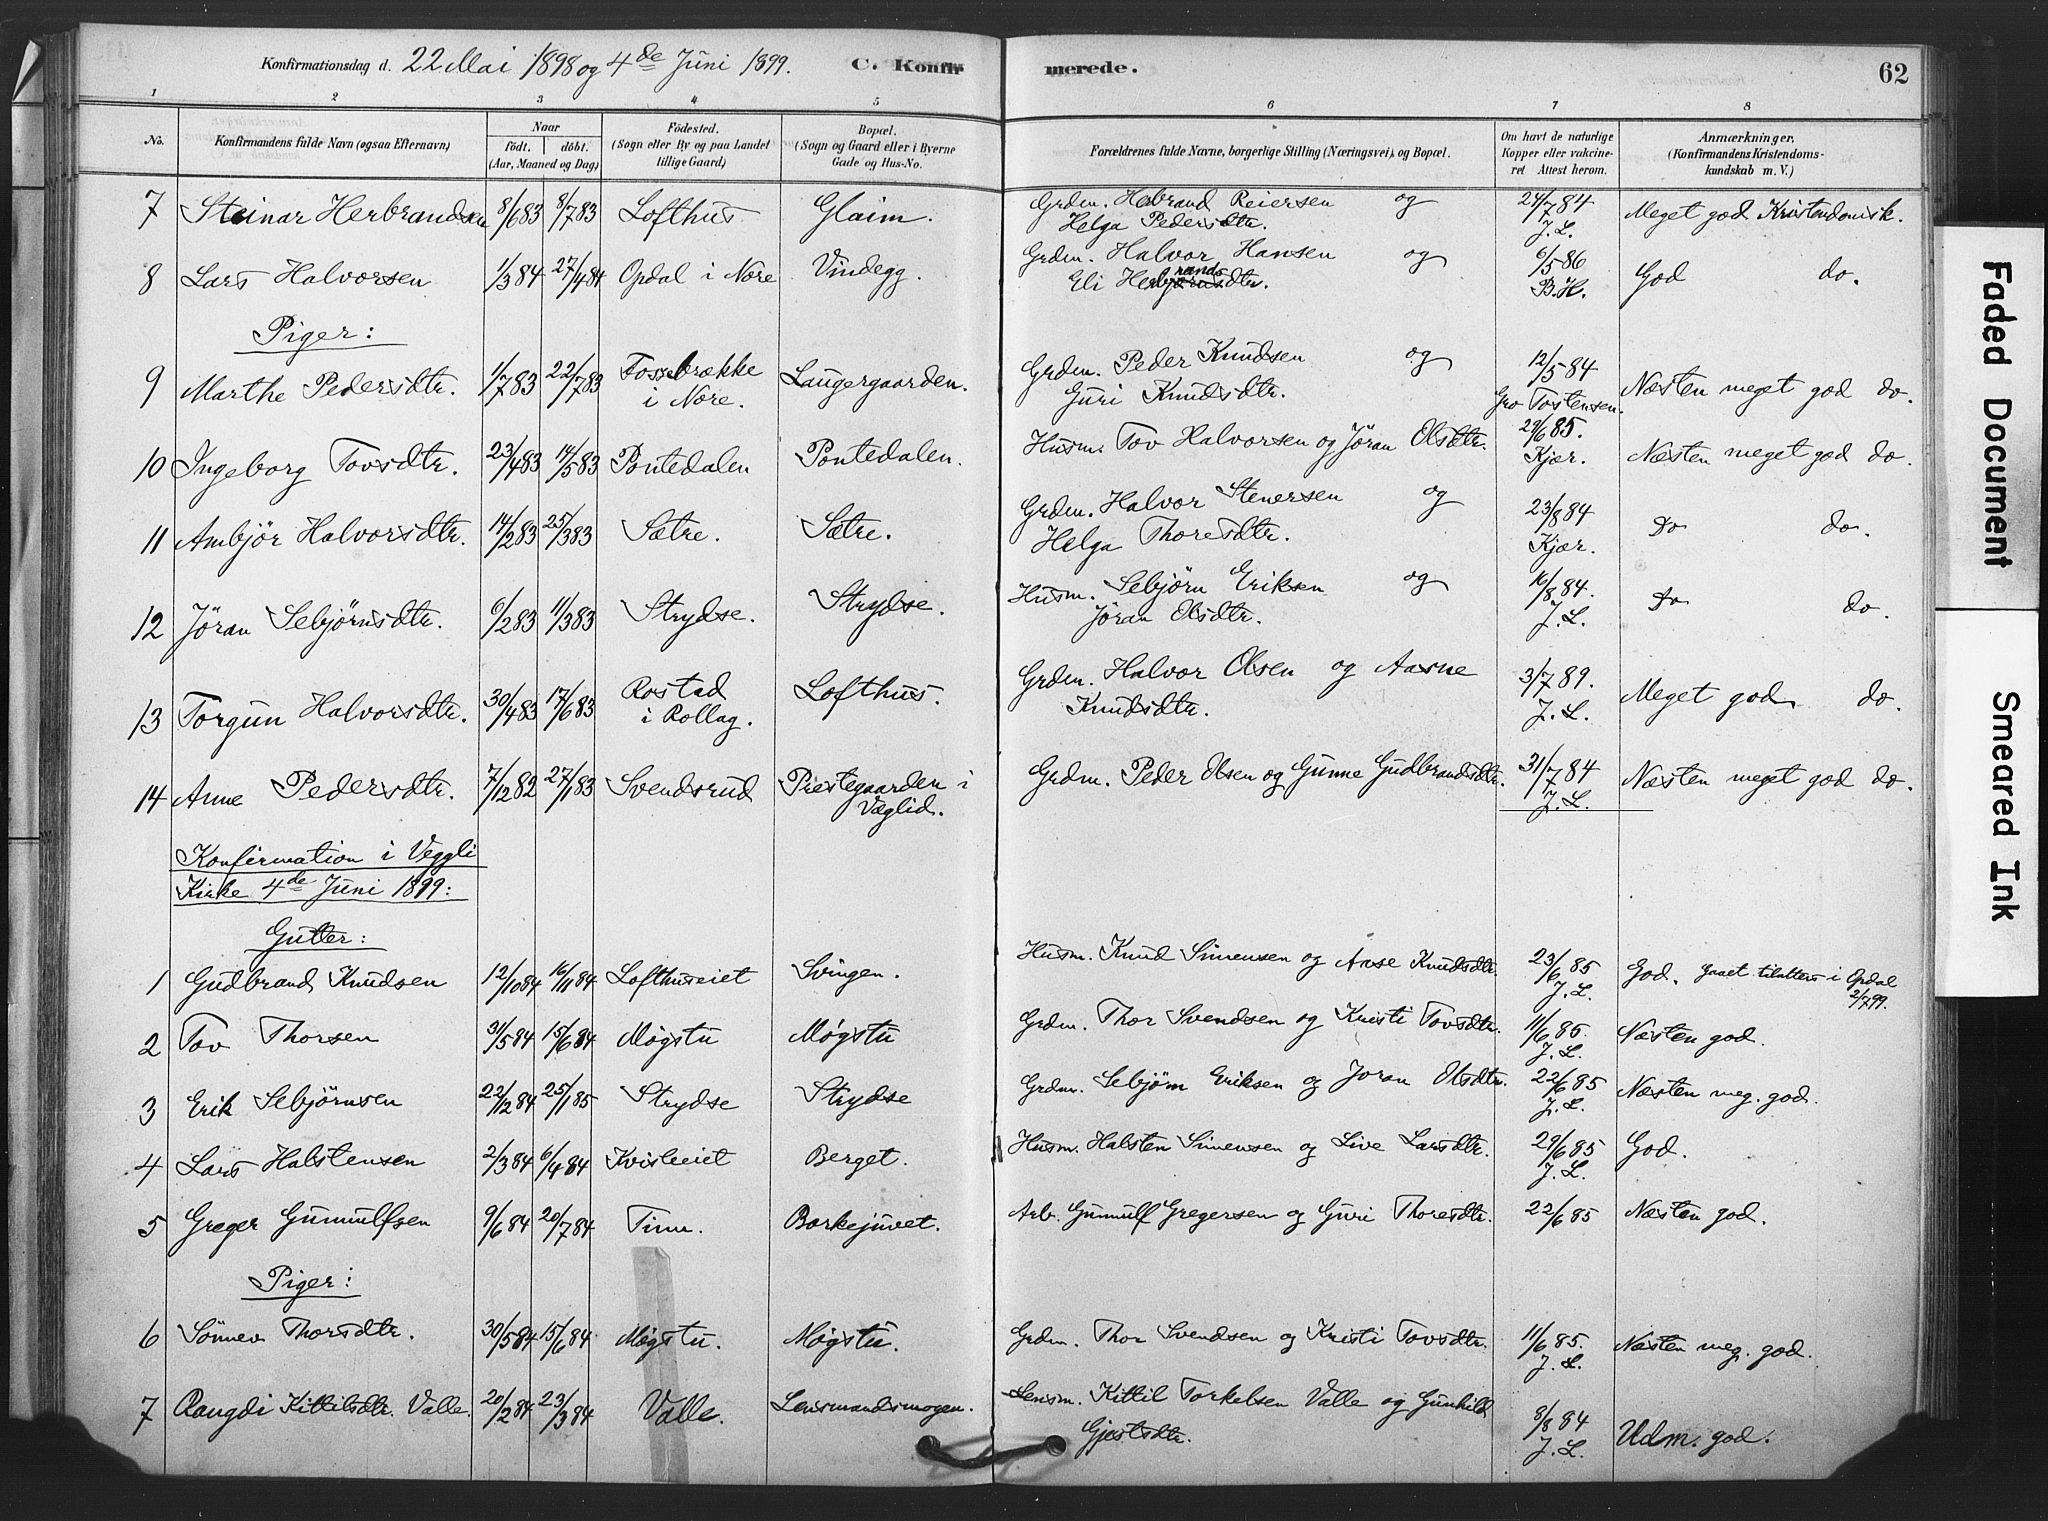 Konfirmationsdag d. 22 Mai 1898 og 4de Juni 1899. C. Konfirmerede. 62
1 2 3 4 5 6 7 8
No. Konfirmandens fulde Navn (ogsaa Efternavn) Naar födt. döbt. (Aar, Maaned og Dag) Födested. (Sogn eller By og paa Landet tillige Gaard) Bopæl. (Sogn og Gaard eller i Byerne Gade og Hus-No. Forældrenes fulde Navne, borgerlige Stilling (Næringsvei), og Bopæl. Om havt de naturlige Kopper eller vakcineret Attest herom. Anmærkninger. (Konfirmandens Kristendomskundskab m. V.)
7 Steinar Herbrandsen 8/6 83 8/7 83 Lofthus. Glaim. Grdm. Hebrand Reiersen og Helga Pedersdtr. 24/7 84 J. L. Meget god Kristendomsk.
8 Lars Halvorsen 1/3 84 27/4 84 Opdal i Nore Vindegg. Grdm. Halvor Hansen og Eli Herbrandsdtr. 6/5 86 B. H. God do.
Piger:
9 Marthe Pedersdtr. 1/7 83 22/7 83 Fossebrække i Nore. Laugergaarden. Grdm. Peder Knudsen og Guri Knudsdtr. 12/5 84 Gro Tostensen. Næsten meget god do.
10 Ingeborg Tovsdtr. 23/4 83 14/5 83 Pontedalen Pontedalen. Husm. Tov Halvorsen og Jöran Olsdtr. 29/6 85. Kjær. Næsten meget god do.
11 Ambjör Halvorsdtr. 14/2 83 25/3 83 Sætre. Sætre. Grdm. Halvor Stenersen og Helga Thoresdtr. 23/8 84 Kjær. do do.
12 Jöran Sebjörnsdtr. 6/2 83 11/3 83 Strydse. Strydse. Husm. Sebjörn Eriksen og Jöran Olsdtr. 16/8 84. J. L. do do.
13 Torgun Halvorsdtr. 30/4 83 17/6 83 Rostad i Rollag. Lofthus. Grdm. Halvor Olsen og Aasne Knudsdtr. 3/7 89. J. L. Meget god do.
14 Anne Pedersdtr. 7/12 82 27/1 83 Svendsrud Prestegaarden i Væglid. Grdm. Peder Olsen og Gunne Gudbrandsdtr. 31/7 84 J. L. Næsten meget god do.
Konfirmation i Veggli
Kirke 4de Juni 1899:
Gutter:
1 Gudbrand Knudsen 12/10 84 16/11 84 Lofthuseiet Svingen. Husm. Knud Simensen og Aase Knudsdtr. 23/6 85 J. L. God. Gaaet tilalters i Opdal 2/7 99.
2 Tov Thorsen 31/5 84 15/6 84 Møgstu Møgstu Grdm. Thor Svendsen og Kristi Tovsdtr. 11/6 85. J. L. Næsten god.
3 Erik Sebjörnsen 22/12 84 25/1 85 Strydse Strydse Grdm. Sebjørn Eriksen og Joran Olsdtr. 22/6 85 J. L. Næsten meg. god.
4 Lars Halstensen 2/3 84 6/4 84 Kvisleiet Berget. Husm. Halsten Simensen og Live Larsdtr. 29/6 85 J. L. God.
5 Greger Gunnulfsen 9/6 84 20/7 84 Tim. Borkejuvet. Arb. Gunnulf Gregersen og Guri Thoresdtr. 22/6 85 Næsten god.
Piger:
6 Sönnev Thorsdtr. 30/5 84 15/6 84 Møgstu. Møgstu. Grdm. Thor Svendsen og Kristi Tovsdtr. 11/6 85. J. L. Næsten meg. god.
7 Rangdi Kittilsdtr. Valle. 20/2 84 23/3 84 Valle. Lensmandsmogen. Lensm. Kittil Torkelsen Valle og Gunhild Gjestsdtr. 8/8 84 J. L. Udm. god.
Faded Document
Smeared Ink